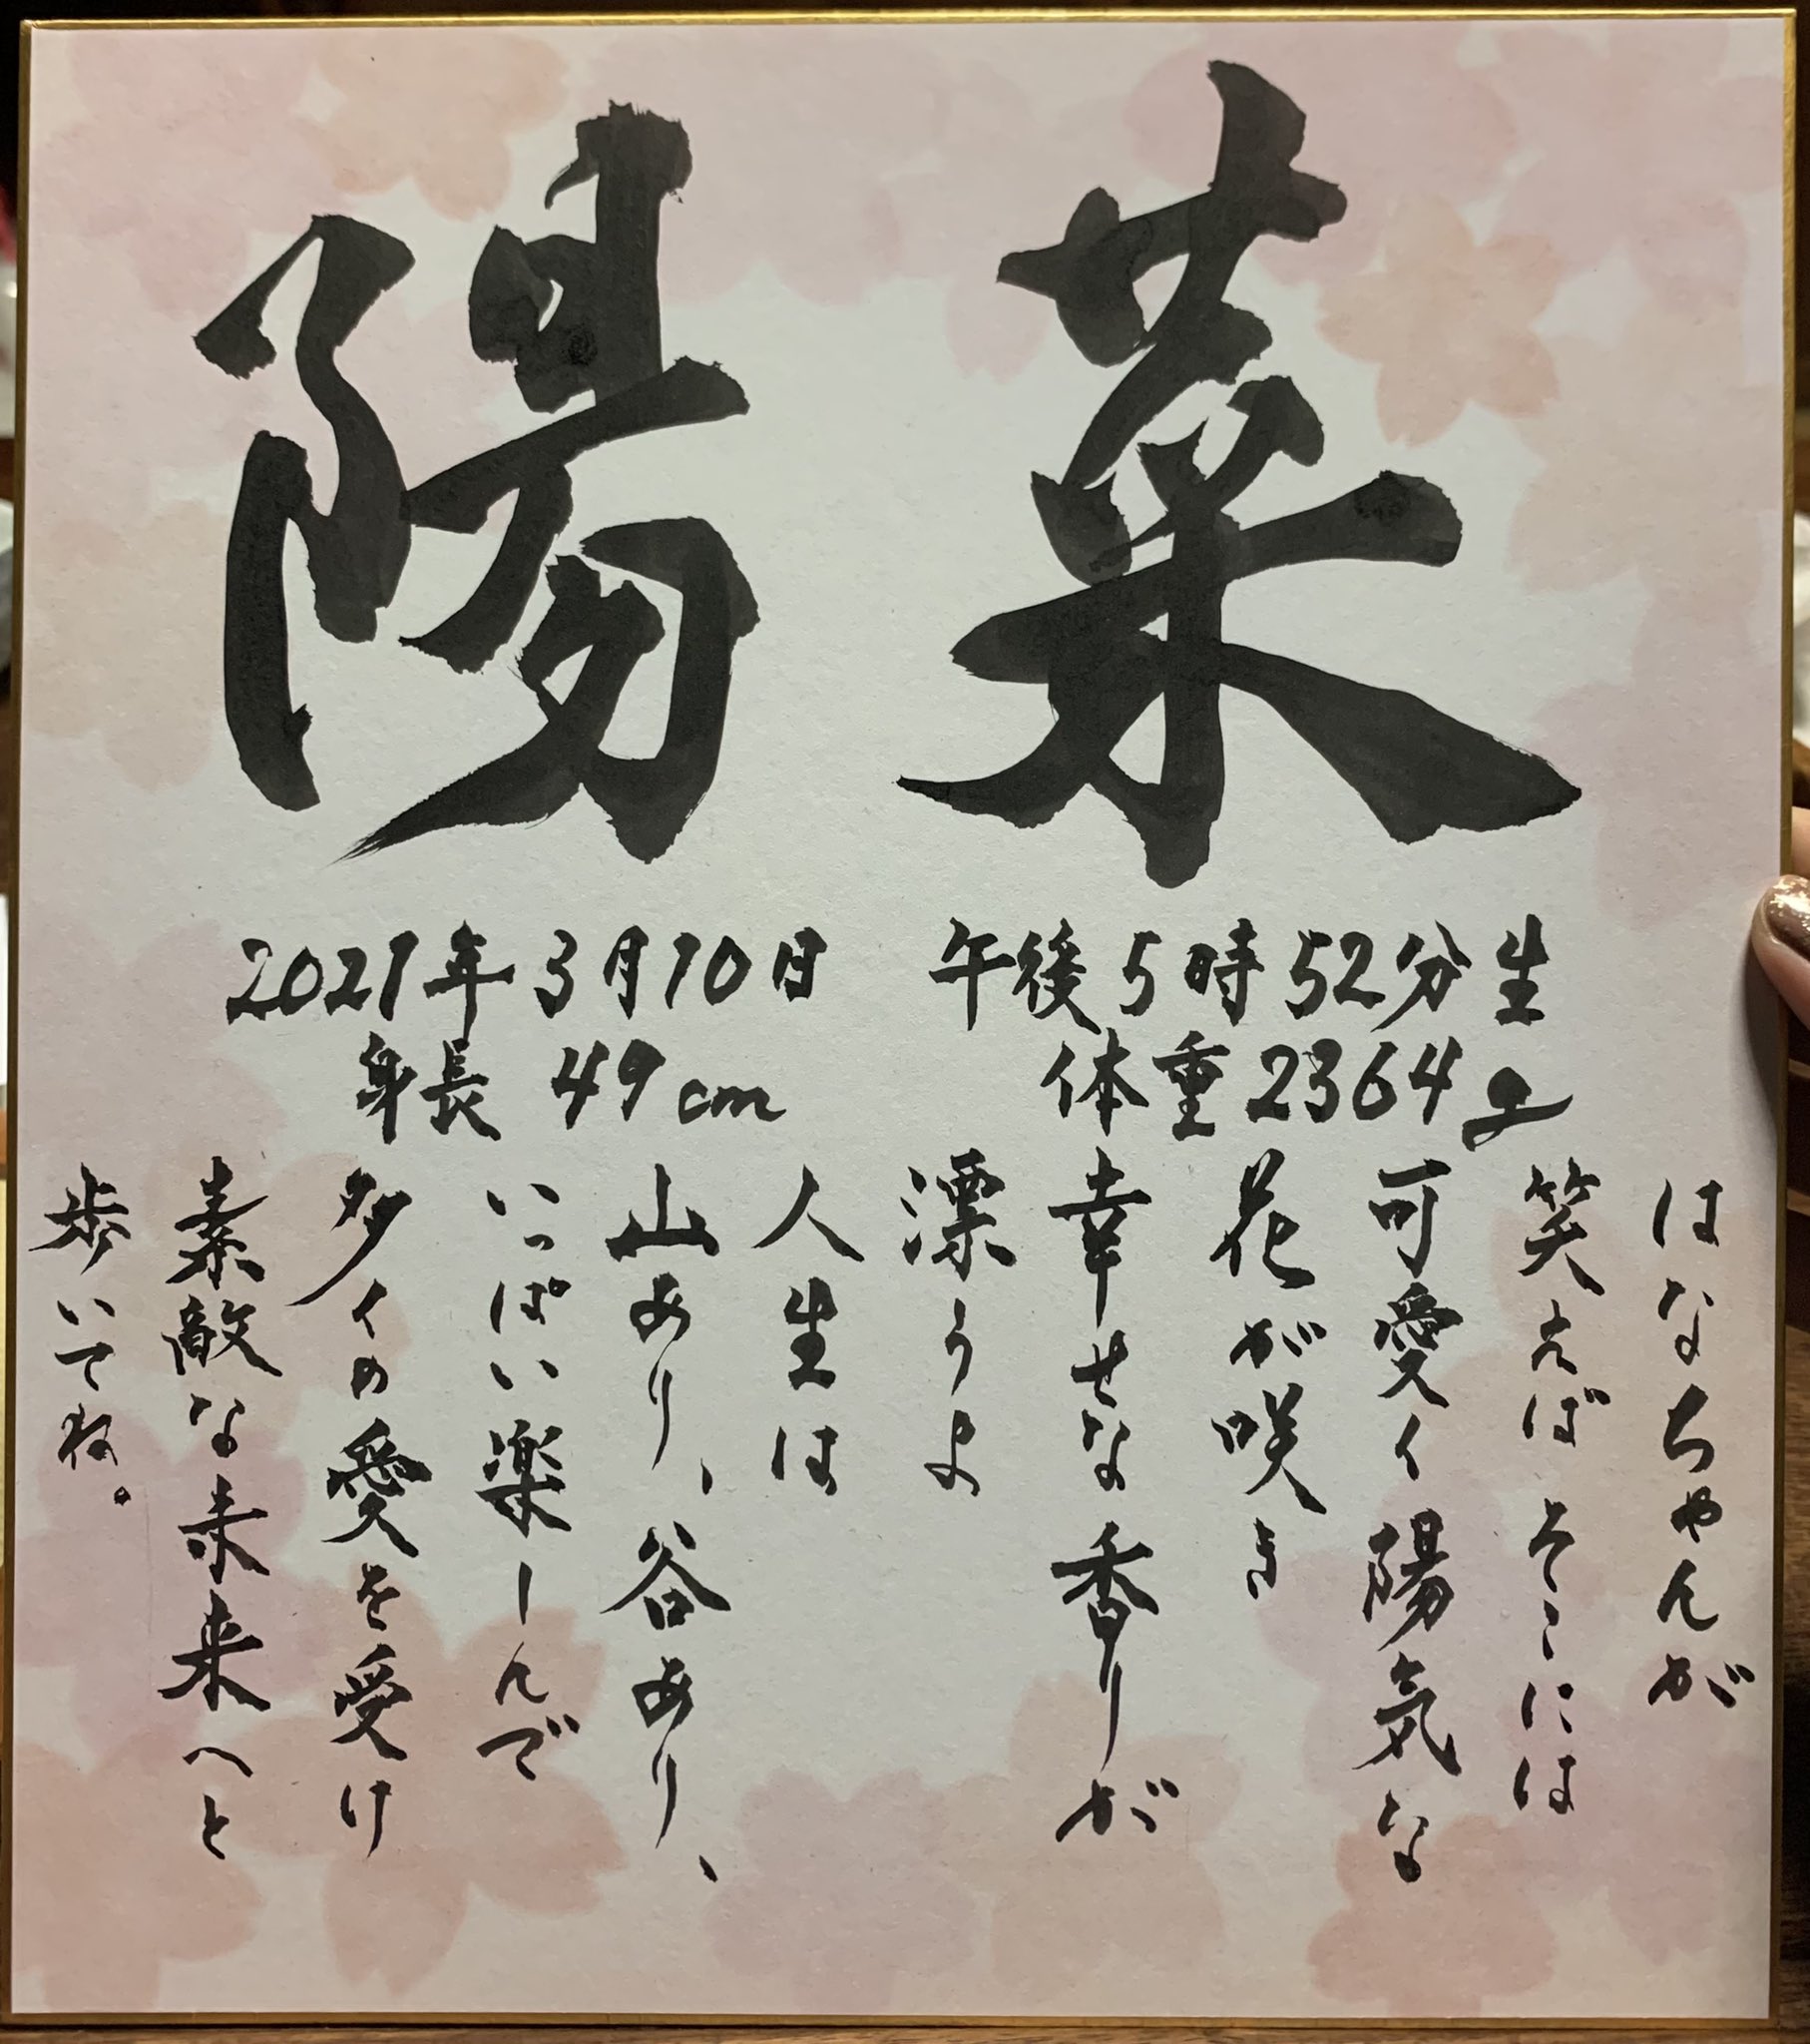 陽菜
2021年3月10日 午後5時52分生
身長 49cm 体重2364g
はなちゃんが
笑えばそこには
可愛く陽気な
花が咲き
幸せな香りが
漂うよ
人生は
山あり、谷あり、
いっぱい楽しんで
多くの愛を受け
素敵な未来へと
歩いてね。